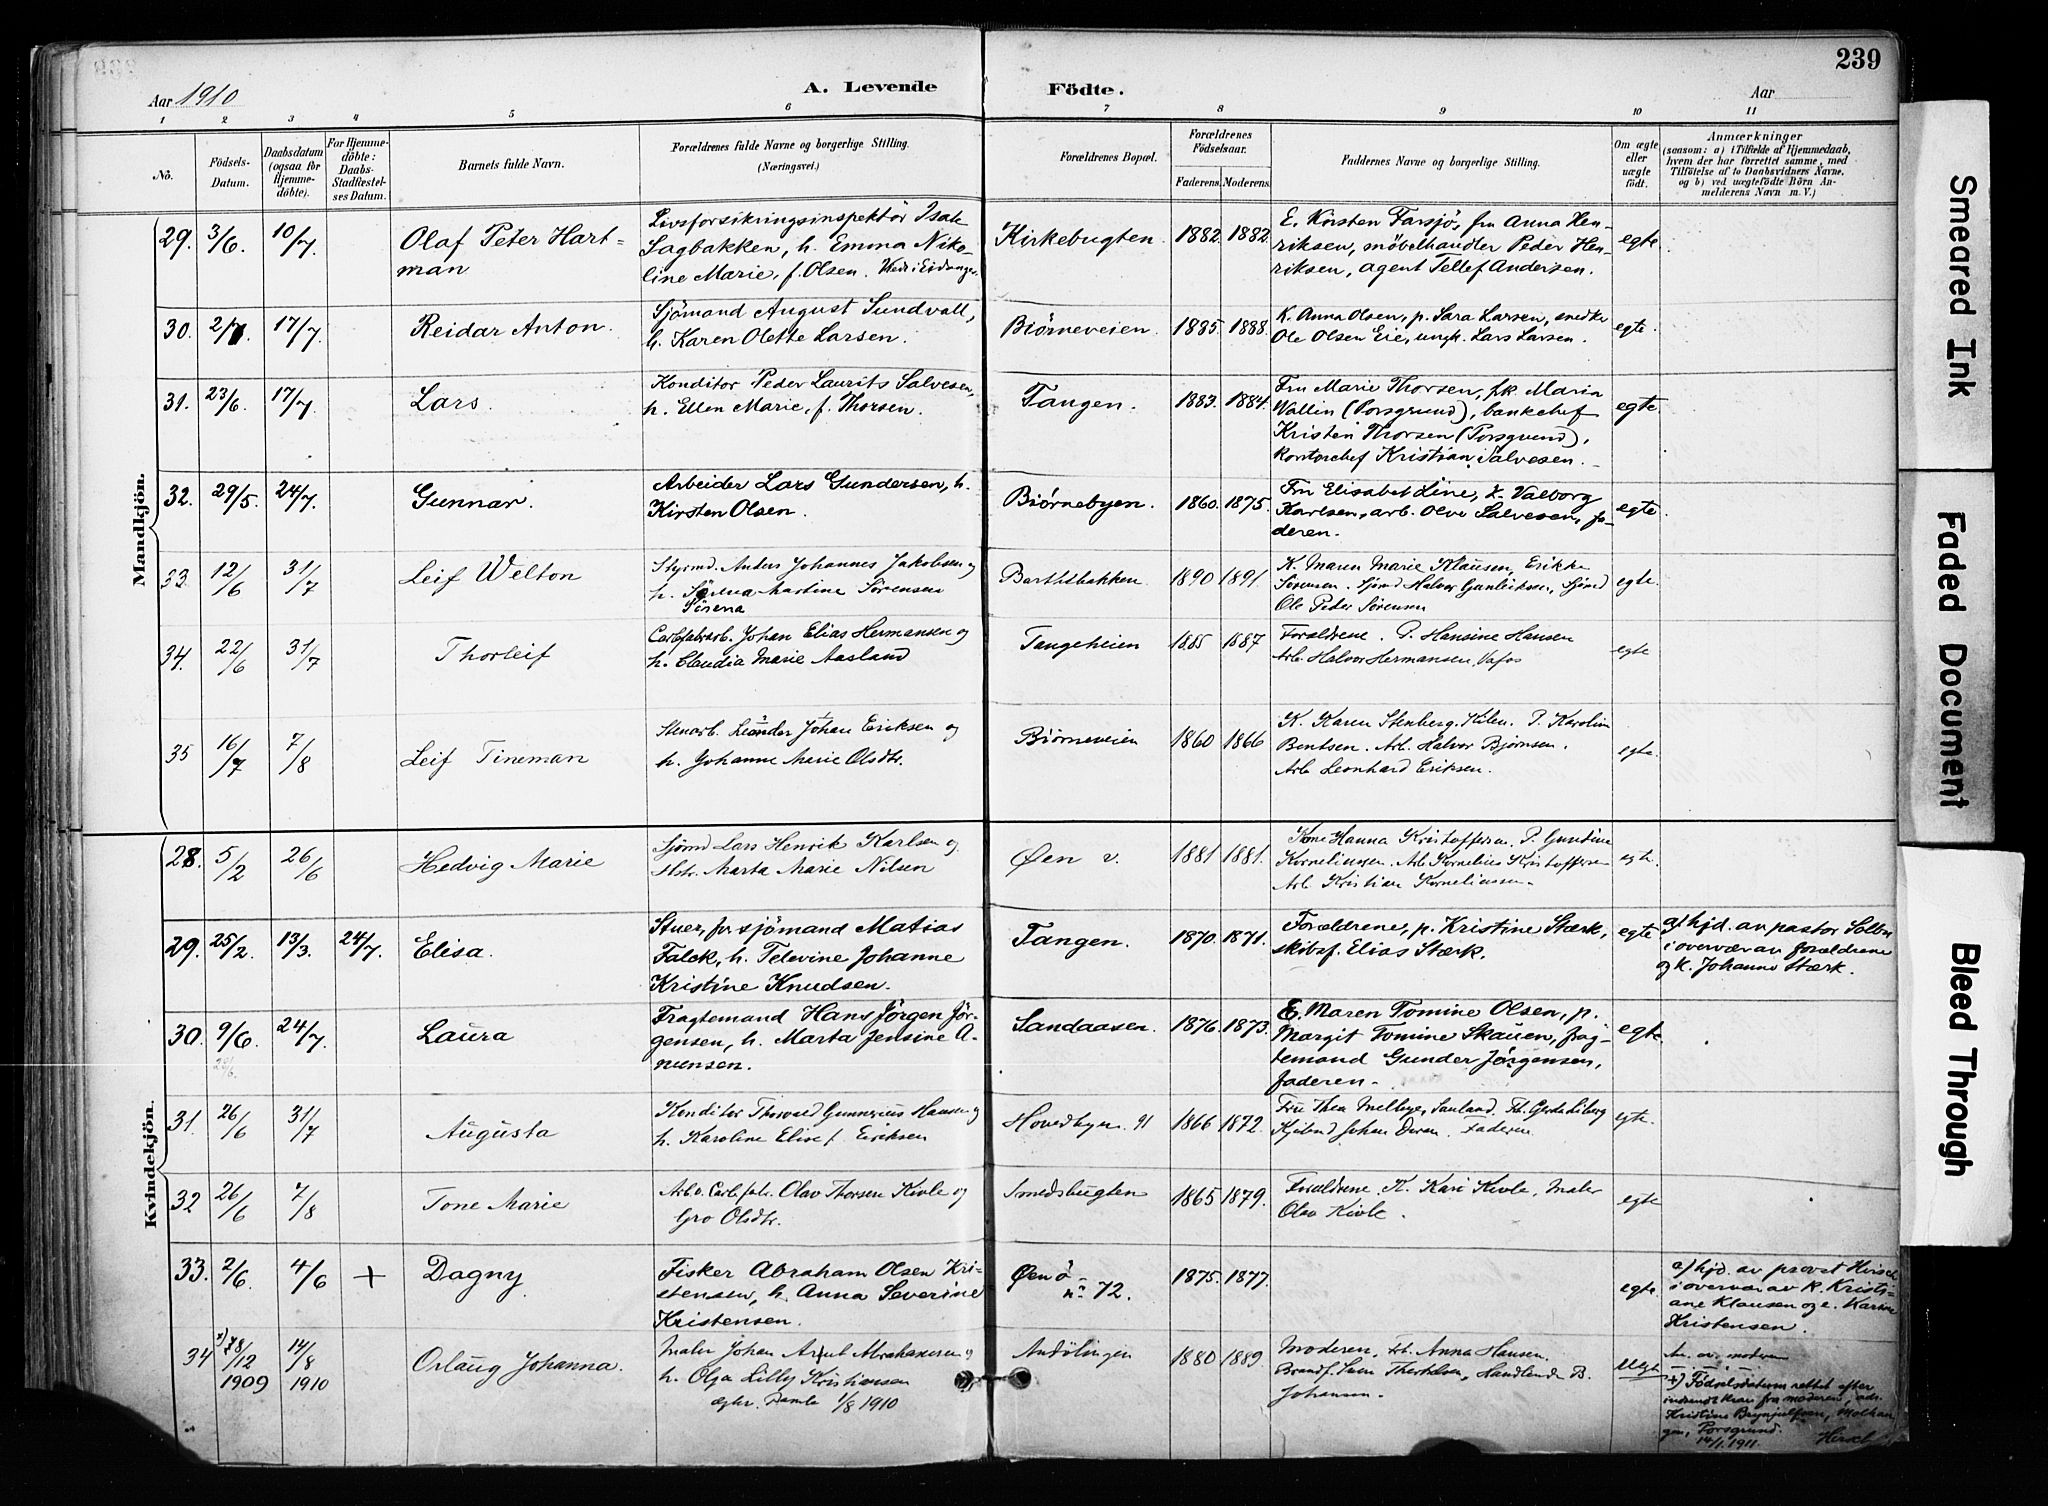 239
Aar 1910
A. Levende Födte.
Aar
1 2 3 4 5 6 7 8 9 10 11
No.
Födsels-Datum.
Daabsdatum (ogsaa for Hjemme-döbte).
For Hjemme-döbte: Daabs-Stadfæstel-ses Datum.
Barnets fulde Navn.
Forældrenes fulde Navne og borgerlige Stilling. (Næringsvei.)
Forældrenes Bopæl.
Forældrenes Födselsaar.
Faderens. Moderens.
Faddernes Navne og borgerlige Stilling.
Om ægte eller uægte födt.
Anmærkninger
(saasom: a) i Tilfælde af Hjemmedaab, hvem der har forrettet samme, med Tilföielse af to Daabsvidners Navne, og b) ved uægtefödte Börn An-melderens Navn m. V.)
Mandkjön.
29. 3/6. 10/7. Olaf Peter Hart-
man
Livsforsikringsinspektör Isak
Sagbakken, h. Emma Niko-
line Marie, f. Olsen. Viede i Eidanger
Kirkebugten. 1882. 1882.
E. Kirsten Farsjø, fru Anna Hen-
riksen, möbelhandler Peder Hen-
riksen, agent Tellef Andersen.
egte
30. 2/7. 17/7. Reidar Anton.
Sjömand August Sundvall,
h. Karen Olette Larsen.
Biørneveien. 1885. 1888.
K. Anna Olsen, p. Sara Larsen, snedker
Ole Olsen Eie, ungk. Lars Larsen.
egte.
31. 23/6. 17/7. Lars.
Konditor Peder Laurits Salvesen,
h. Ellen Marie, f. Thorsen.
Tangen. 1883. 1884.
Fru Marie Thorsen, frk. Maria
Wallin (Porsgrund), bankchef
Kristen Thorsen (Porsgrund),
kontorchef Kristian Salvesen.
egte.
32. 29/5. 24/7. Gunnar.
Arbeider Lars Gundersen, h.
Kirsten Olsen.
Biørnebyen. 1860. 1875.
Fru Elisabet Line, k. Valborg
Karlsen, arb. Olve Salvesen, fa-
deren.
egte.
33. 12/6 31/7 Leif Welton
Styrmd. Anders Johannes Jakobsen og
h. Martine Sörensen
Sörena
Barthbakken. 1890 1891.
K. Maren Marie Klausen, Erikke
Sörensen. Sjömd Halvor Gunleiksen, Sjömd
Ole Peder Sørensen
egte.
34. 22/6 31/7 Thorleif
Carbfabrarb. Johan Elias Hermansen og
h. Claudia Marie Aasland
Tangeheien 1885 1887
Forældrene. P. Hansine Hansen
Arb. Halvor Hermansen, Vafos
egte
35 16/7 7/8 Leif Tineman
Stenarb. Leander Johan Eriksen og
h. Johanne Marie Olsdtr.
Biørneveien 1860 1866
K. Karen Stenberg, Kilen. P. Karoline
Bentsen. Arb. Halvor Bjørnsen.
Arb Leonhard Eriksen.
egte.
Kvindekjön.
28. 5/2 26/6 Hedvig Marie
Sjömd Lars Henrik Karlsen og
Hstr. Marta Marie Nilsen
Øen v. 1881 1881.
Kone Hanna Kristoffersen P. Gundine
Korneliussen. Arb Kornelius Kristoffersen
Arb. Kristian Korneliussen.
egte.
29. 25/2. 13/3. 24/7. Elisa.
Stuer, för sjömand Matias
Falck, h. Televine Johanne
Kristine Knudsen.
Tangen. 1870. 1871.
Forældrene, p. Kristine Stærk,
skibsf. Elias Stærk.
egte
a/ hjd. av pastor Selbu
i overvær av forældrene
og k. Johanne Stærk.
30. 9/6. 24/7. Laura
Fragtemand Hans Jörgen Jör-
gensen, h. Marta Jensine A-
nunsen.
Sandaasen. 1876. 1873.
E. Maren Tomine Olsen, p.
Margit Tomine Skauen, frag-
temand Gunder Jörgensen,
faderen.
egte.
31 26/6 31/7 Augusta
Konditor Thorvald Gunnerius Hansen og
h. Karoline Elise f. Eriksen
Hovedbyen 91 1866 1872.
Fru Thea Melbye, Sauland. Frk. Gerda Liberg
Kjöbmd Johan Faderen
egte.
32 26/6 7/8 Tone Marie
Arb. v. Carbfabr. Olav Thorsen Kivle og
Gro Olsdtr.
Smedsbugten 1865 1879.
Forældrene. K. Kari Kivle, Maler
Olav Kivle.
egte
33. 2/6. 4/6 + Dagny
Fisker Abraham Olsen Kri-
stensen, h. Anna Severine
Kristensen.
Øen ö
n° 72. 1875. 1877.
egte
a/ hjd. av provst Hirsch
i overvær av k. Kristi-
ane Klausen og e. Karine
Kristensen.
34 +) 28/12 1909 14/8 1910 Orlaug Johanna.
Maler Johan Arnt Abrahamsen og
h. Olga Lilly Kristiansen
egtev. Bamle 1/8 1910
Andölingen 1880 1889.
Moderen, Frk. Anna Hansen.
Brandf. Sven Therkelsen, Handlende B.
Johansen.
Uegte
An. av moderen
+) Födselsdatoen rettet efter
indsendt krav fra moderen, adr.
Kristine Brynjulfsen,
Porsgrund.
14/1 1911. Hirsch
Smeared Ink
Faded Document
Bleed Through